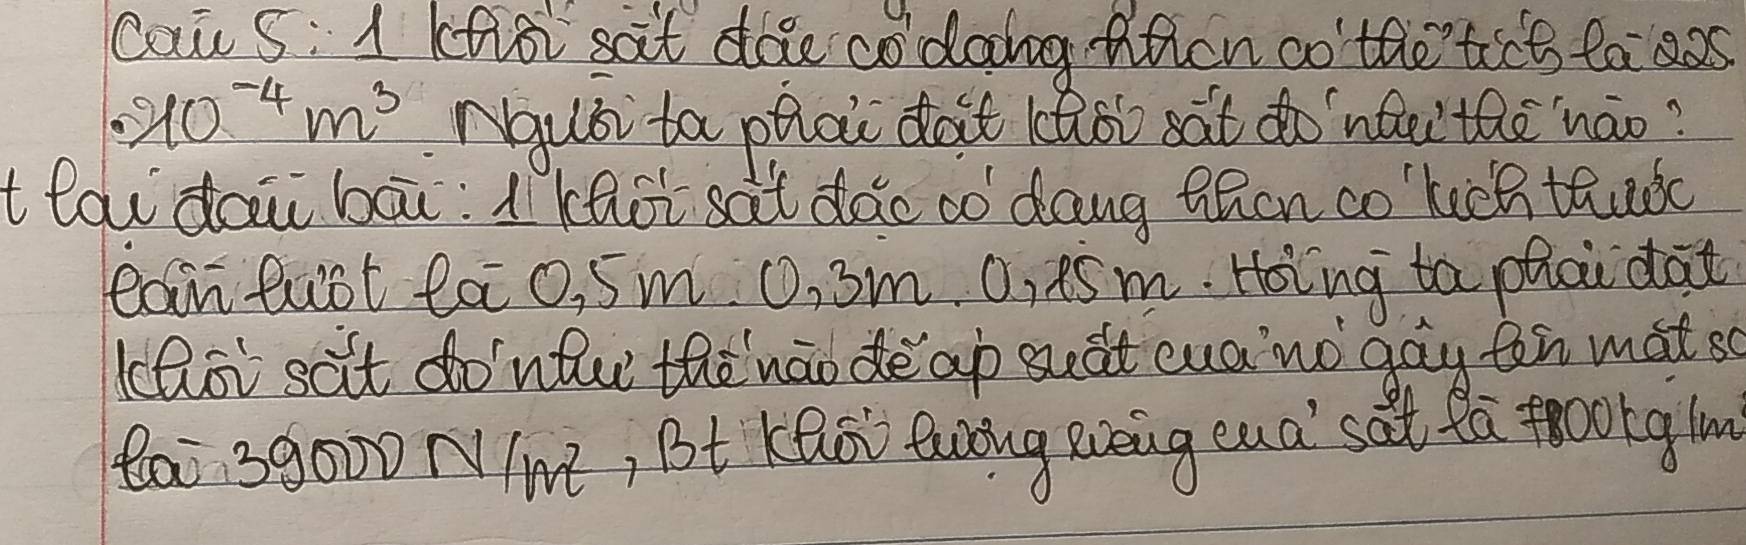 Câu 5: 1 khối sắt đặc có dạng hhcn có thể tích là 225
.10⁻⁴ m³ Người ta phải đặt khối sắt đó như thế nào?
t lại đầu bài: 1 khối sắt đặc có dạng hhcn có kích thước
lần lượt là 0,5m. 0,3m. 0,15m. Hỏi ng ta phải đặt
khối sắt đó như thế nào để áp suất của nó gây lên mặt sà
là 39000 N/m², Bt khối lượng riêng của sắt là 7800kg/m³